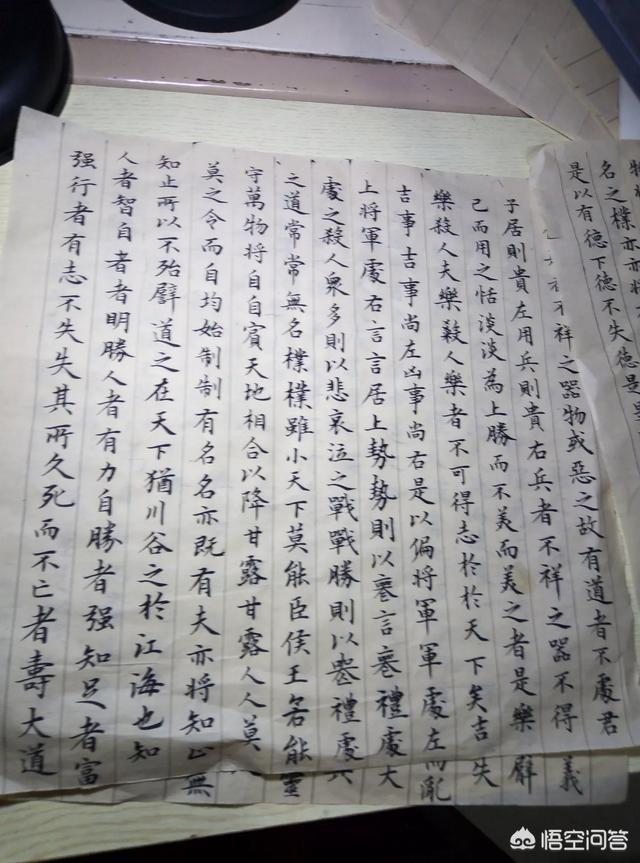 名之樸亦亦將
是以有德下德不失德是
不祥之器物或惡之故有道者不處君
子居則貴左用兵則貴右兵者不祥之器不得義
已而用之恬淡淡為上勝而不美而美之者是樂辟
樂殺人夫樂殺人樂者不可得志於於天下矣吉失
吉事吉事尚左凶事尚右是以偏將軍軍處左而亂
上將軍處右言言居上勢勢則以喪言喪禮處大
處之殺人眾多則以悲哀泣之戰戰勝則以喪禮處
之道常常無名樸樸雖小天下莫能臣侯王若能靈
守萬物將自自賓天地相合以降甘露甘露人人莫
莫之令而自均始制制有名名亦既有夫亦將知止無
知止所以不殆譬道之在天下猶川谷之於江海也知
人者智自者者明勝人者有力自勝者強知足者富
强行者有志不失失其所久死而不亡者壽大道
悟空问答